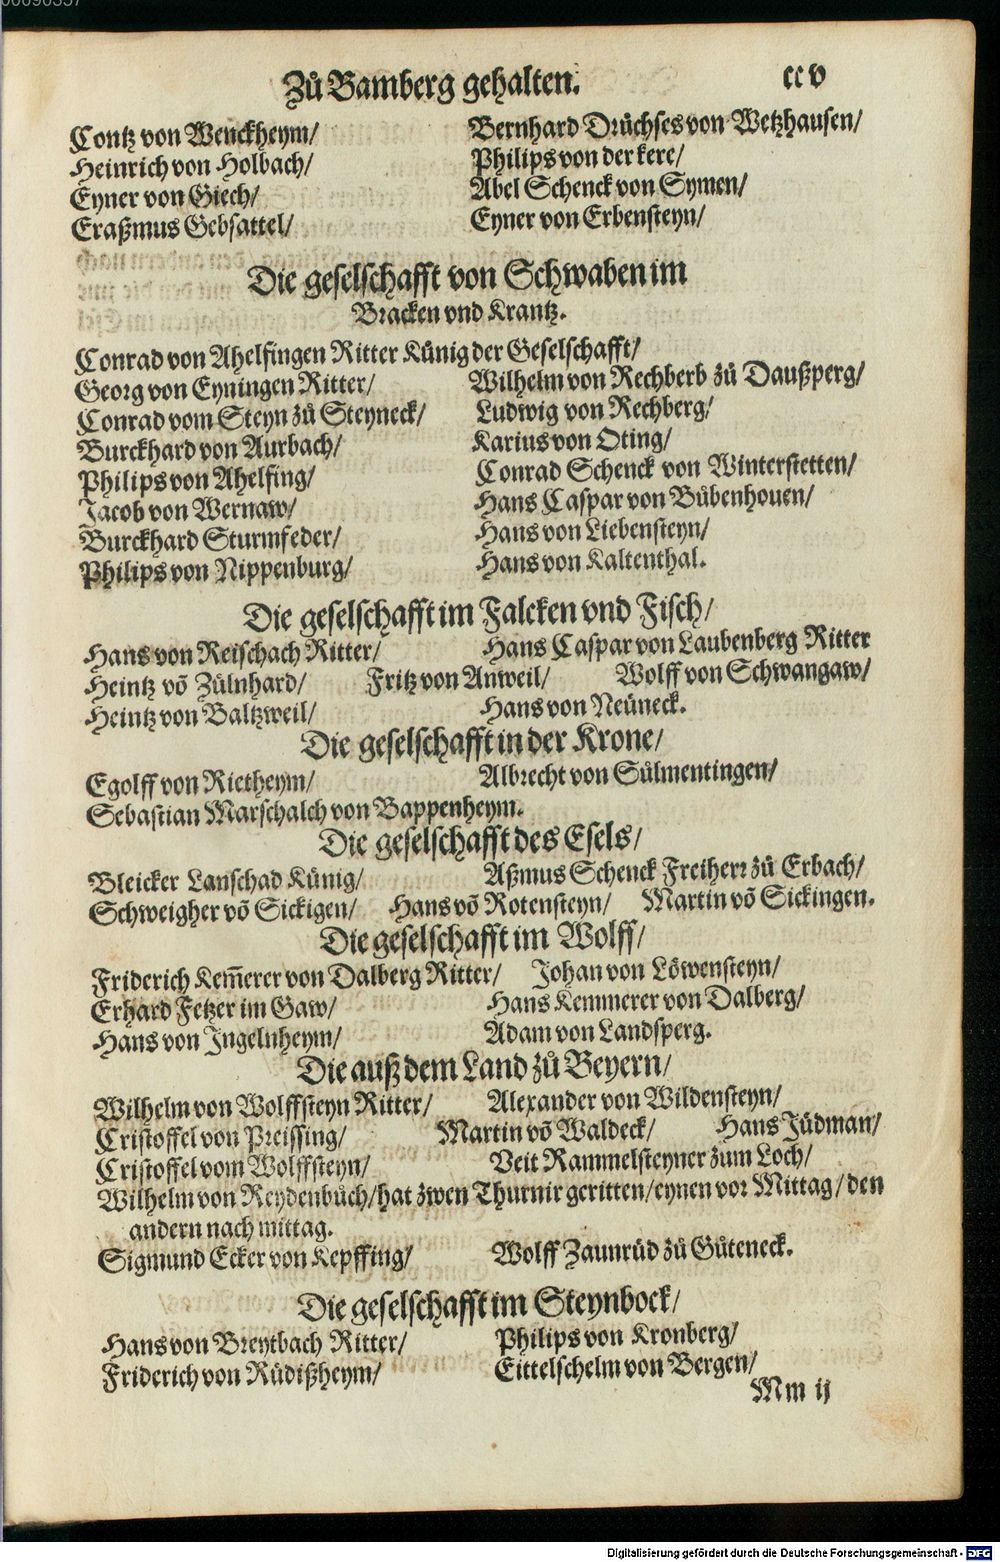 Zů Bamberg gehalten. ccv
Contz von Wenckheym/ Bernhard Drüchses von Wetzhausen/
Heinrich von Holbach/ Philips von der kere/
Eyner von Giech/ Abel Schenck von Symen/
Eraßmus Gebsattel/ Eyner von Erbensteyn/
Die geselschafft von Schwaben im
Bracken vnd Krantz.
Conrad von Ahelfingen Ritter Künig der Geselschafft/
Georg von Eyningen Ritter/ Wilhelm von Rechberb zů Daußperg/
Conrad vom Steyn zů Steyneck/ Ludwig von Rechberg/
Burckhard von Aurbach/ Karius von Oting/
Philips von Ahelfing/ Conrad Schenck von Winterstetten/
Jacob von Wernaw/ Hans Caspar von Bůbenhouen/
Burckhard Sturmfeder/ Hans von Liebensteyn/
Philips von Nippenburg/ Hans von Kaltenthal.
Die geselschafft im Falcken vnd Fisch/
Hans von Reischach Ritter/ Hans Caspar von Laubenberg Ritter
Heintz võ Zülnhard/ Fritz von Anweil/ Wolff von Schwangaw/
Heintz von Baltzweil/ Hans von Neüneck.
Die geselschafft in der Krone/
Egolff von Rietheym/ Albrecht von Sülmentingen/
Sebastian Marschalch von Bappenheym.
Die geselschafft des Esels/
Bleicker Lanschad Künig/ Aßmus Schenck Freiherr zů Erbach/
Schweigher võ Sickigen/ Hans võ Rotensteyn/ Martin võ Sickingen.
Die geselschafft im Wolff/
Friderich Kem̃erer von Dalberg Ritter/ Johan von Löwensteyn/
Erhard Fetzer im Gaw/ Hans Kemmerer von Dalberg/
Hans von Ingelnheym/ Adam von Landsperg.
Die auß dem Land zů Beyern/
Wilhelm von Wolffsteyn Ritter/ Alexander von Wildensteyn/
Cristoffel von Preissing/ Martin võ Waldeck/ Hans Jüdman/
Cristoffel vom Wolffsteyn/ Veit Rammelsteyner zum Loch/
Wilhelm von Reydenbůch/ hat zwen Thurnir geritten/ eynen vor Mittag/ den
andern nach mittag.
Sigmund Ecker von Kepffing/ Wolff Zaunrüd zů Gůteneck.
Die geselschafft im Steynbock/
Hans von Breytbach Ritter/ Philips von Kronberg/
Friderich von Rüdißheym/ Eittelschelm von Bergen/
Mm ij
Digitalisierung gefördert durch die Deutsche Forschungsgemeinschaft - DFG